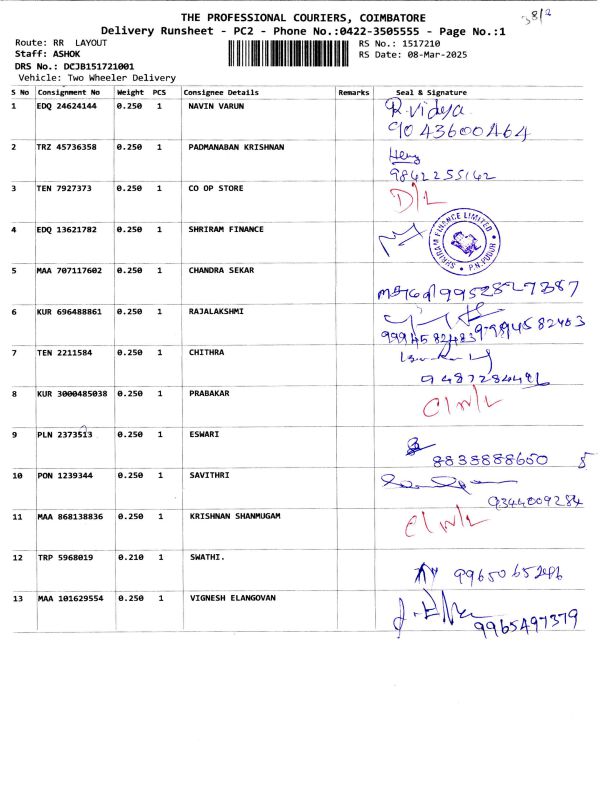 THE PROFESSIONAL COURIERS, COIMBATORE
Delivery Runsheet - PC2 - Phone No.:0422-3505555 - Page No.:1
Route: RR LAYOUT
RS No.: 1517210
Staff: ASHOK
RS Date: 08-Mar-2025
DRS No.: DCJB151721001
Vehicle: Two Wheeler Delivery
S No Consignment No Weight PCS Consignee Details Remarks Seal & Signature
1 EDQ 24624144 0.250 1 NAVIN VARUN R. Vidya
9043600464
2 TRZ 45736358 0.250 1 PADMANABAN KRISHNAN
9842255142
3 TEN 7927373 0.250 1 CO OP STORE D/L
4 EDQ 13621782 0.250 1 SHRIRAM FINANCE
SHRIRAM FINANCE LIMITED
5 MAA 707117602 0.250 1 CHANDRA SEKAR
9952827387
6 KUR 696488861 0.250 1 RAJALAKSHMI
9994582483
7 TEN 2211584 0.250 1 CHITHRA
8 KUR 3000485038 0.250 1 PRABAKAR C/N/L
9 PLN 2373513 0.250 1 ESWARI
8838888650
10 PON 1239344 0.250 1 SAVITHRI
9344009284
11 MAA 868138836 0.250 1 KRISHNAN SHANMUGAM C/N/L
12 TRP 5968019 0.210 1 SWATHI.
13 MAA 101629554 0.250 1 VIGNESH ELANGOVAN
9965497379